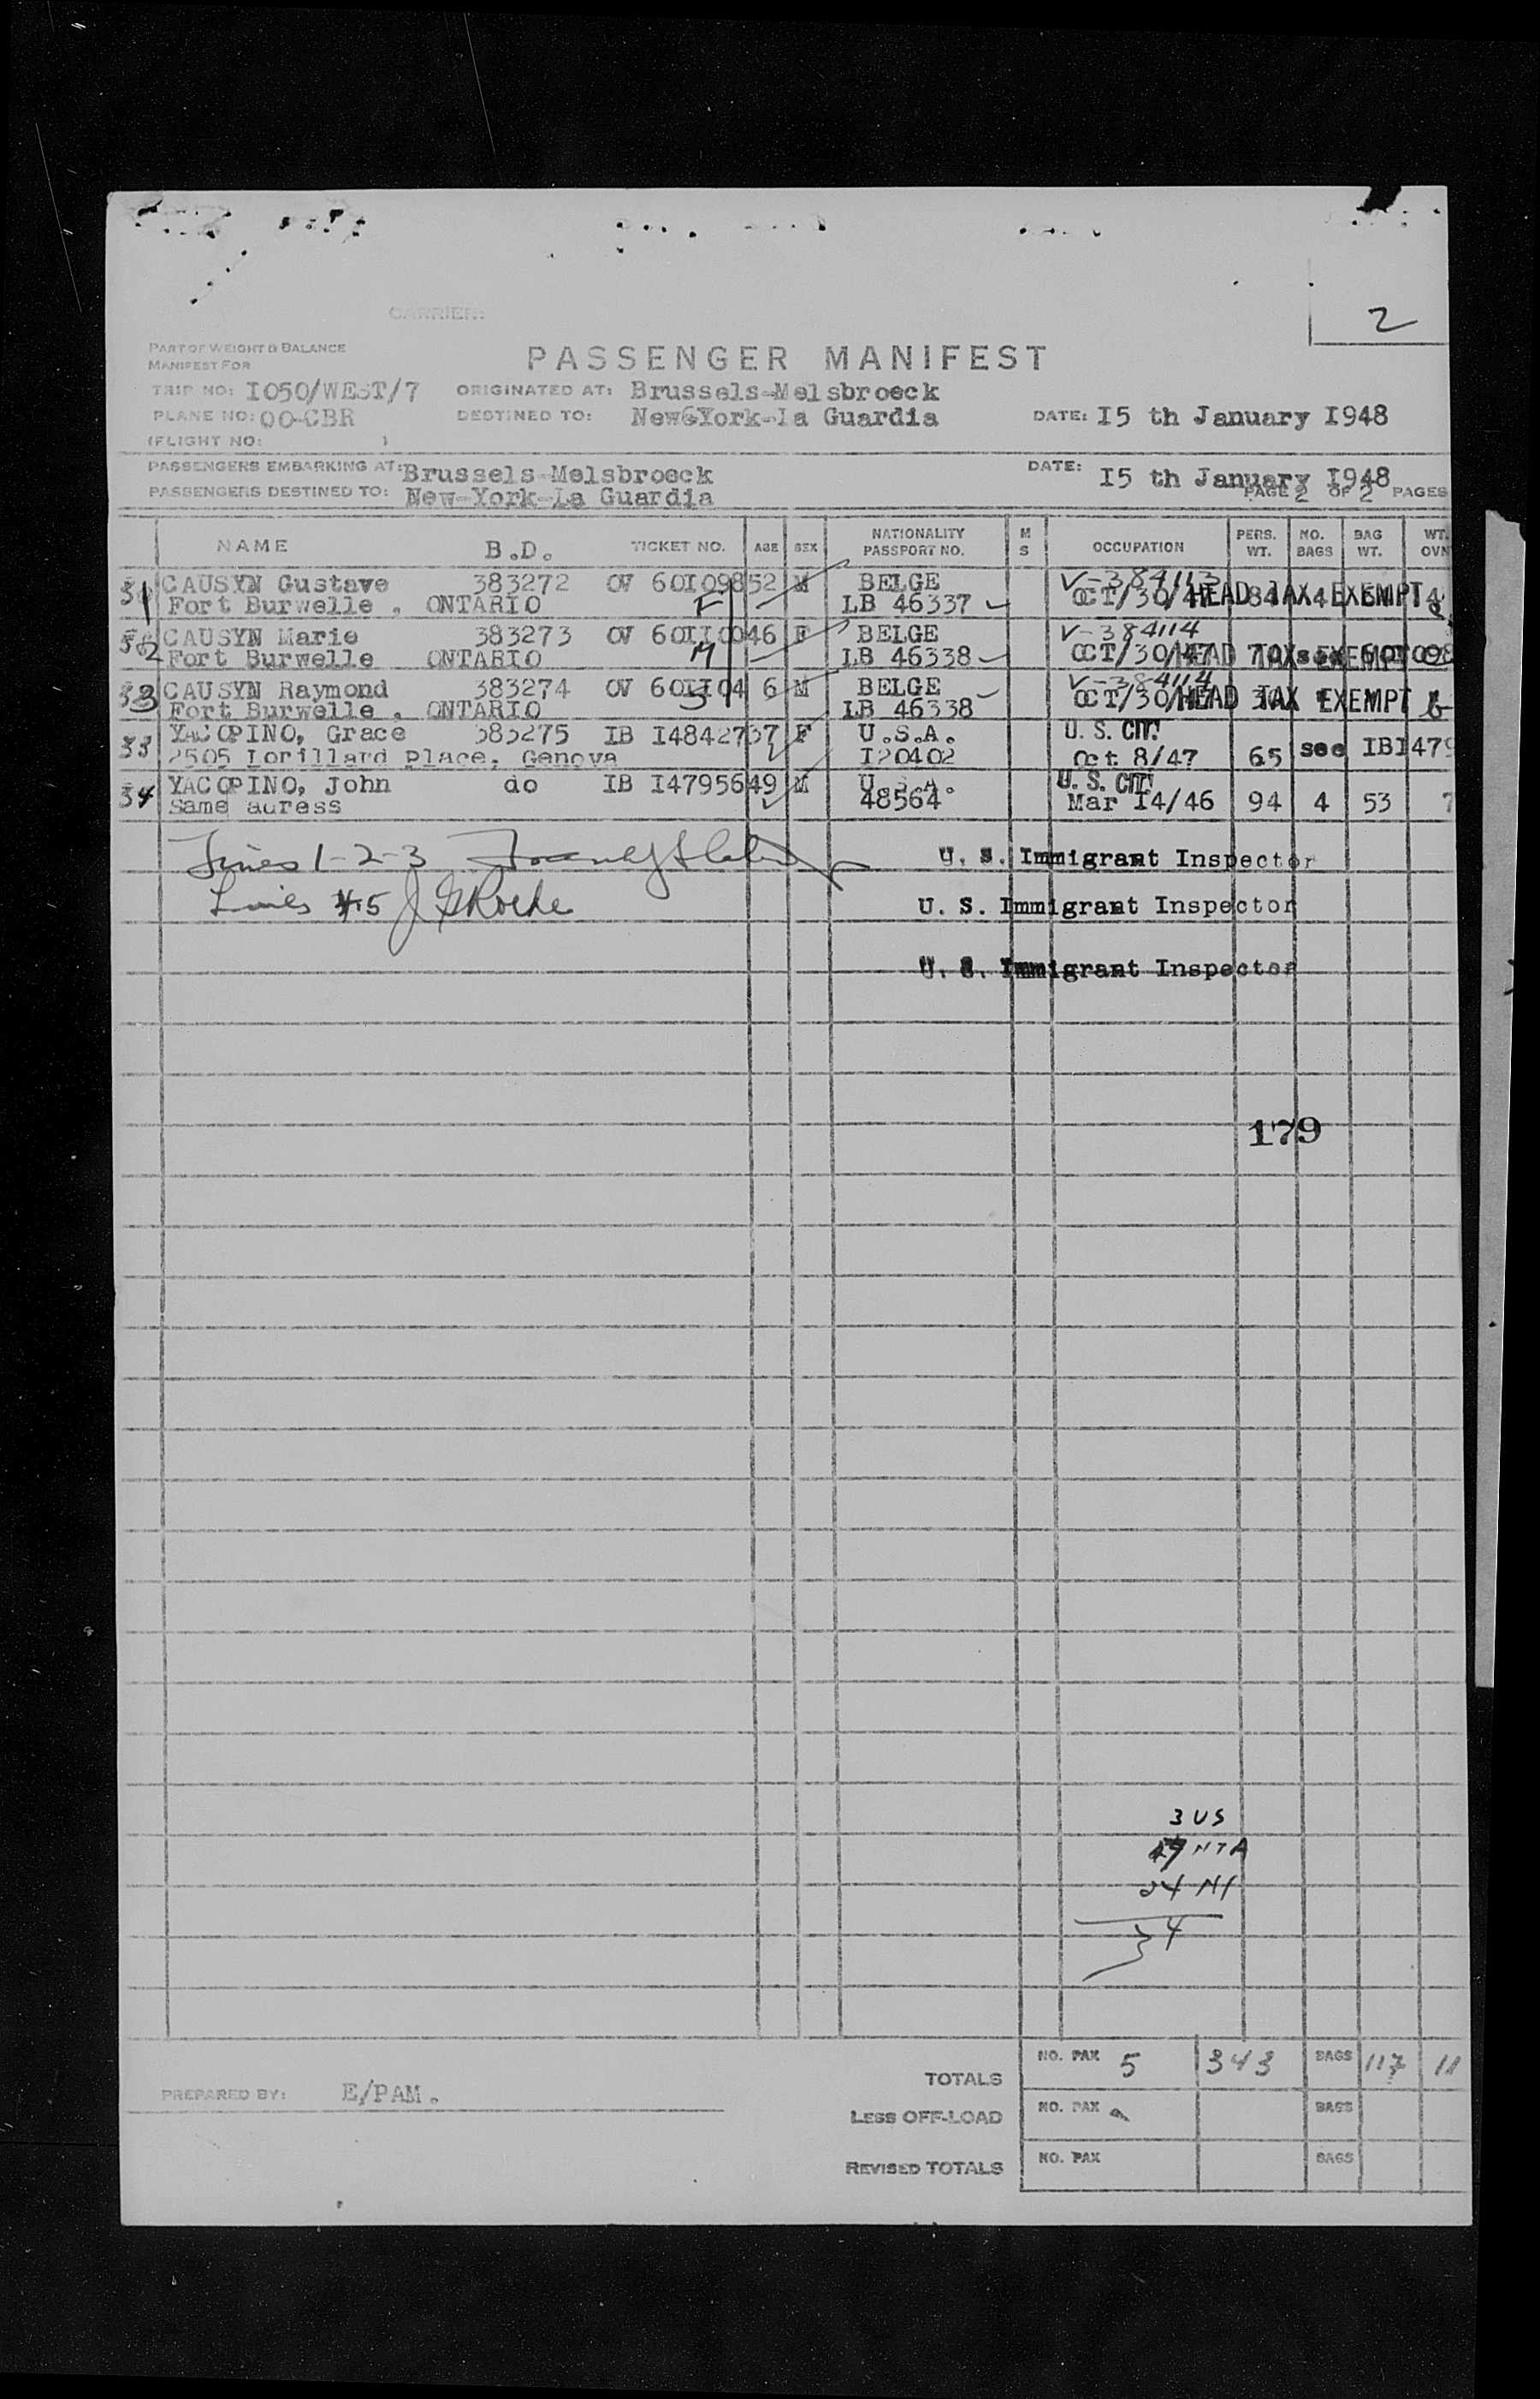 CARRIER:
2
PART OF WEIGHT & BALANCE
MANIFEST FOR
PASSENGER MANIFEST
TRIP NO: I050/WEST/7 ORIGINATED AT: Brussels-Melsbroeck
PLANE NO: OO-CBR DESTINED TO: New&York-la Guardia DATE: I5 th January I948
(FLIGHT NO: )
PASSENGERS EMBARKING AT: Brussels-Melsbroeck DATE: I5 th January I948
PASSENGERS DESTINED TO: New-York-La Guardia PAGE 2 OF 2 PAGES
NAME B.D. TICKET NO. AGE SEX NATIONALITY PASSPORT NO. M S OCCUPATION PERS. WT. NO. BAGS BAG WT. WT. OVN
1 CAUSYN Gustave 383272 OV 60I098 52 M BELGE V-384113
Fort Burwelle , ONTARIO F LB 46337 OCT/30/47 HEAD TAX EXEMPT
2 CAUSYN Marie 383273 OV 60II00 46 F BELGE V-384114
Fort Burwelle ONTARIO M LB 46338 OCT/30/47 HEAD TAX EXEMPT
3 CAUSYN Raymond 383274 OV 60II04 6 M BELGE V-384114
Fort Burwelle , ONTARIO LB 46338 OCT/30/47 HEAD TAX EXEMPT
33 YACOPINO, Grace 383275 IB I48427 37 F U.S.A. U. S. CIT.
2505 Lorillard Place, Genova I20402 Oct 8/47 65 see IBI479
34 YACOPINO, John do IB I47956 49 M U.S.A. U. S. CIT.
same adress 48564 Mar I4/46 94 4 53 7
Lines 1-2-3 U. S. Immigrant Inspector
Lines 4-5 U. S. Immigrant Inspector
U. S. Immigrant Inspector
179
3 US
NTA
24 NI
34
TOTALS NO. PAX 5 343 BAGS 117 11
PREPARED BY: E/PAM.
LESS OFF-LOAD NO. PAX BAGS
REVISED TOTALS NO. PAX BAGS